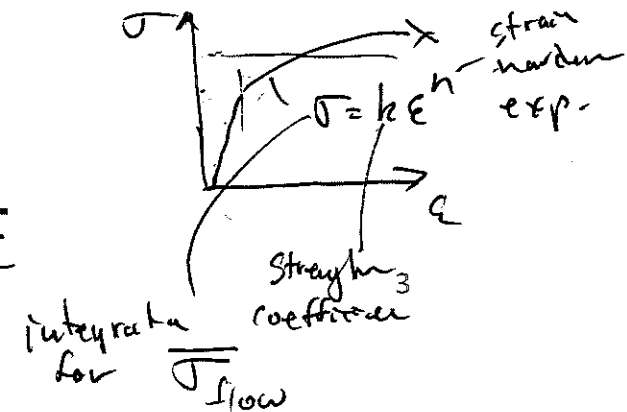 σ
strain
harden
exp.
σ = k ε^n
ε
Strength
coefficient
3
integrate
for σ̅ flow